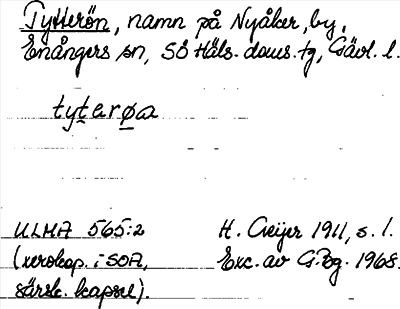 Tytterön, namn på Nyåker, by,
Enångers sn, SÖ Häls. doms. tg, Gävl. l.
tyterøa
ULMA 565:2 H. Geijer 1911, s. 1.
(xerokop. i SOA, Exc. av G. Bg. 1968.
särsk. kapsel).